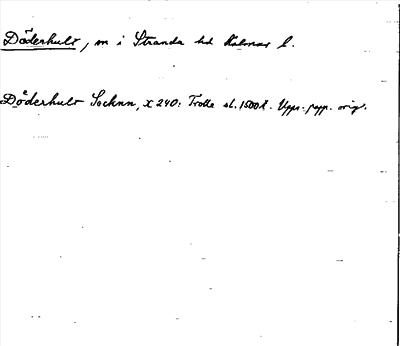 Döderhult, sn i Stranda hd Kalmar l.
Döderhult Socknn, X 240: Trolle sl. 1500t. Uppr. papp. orig.